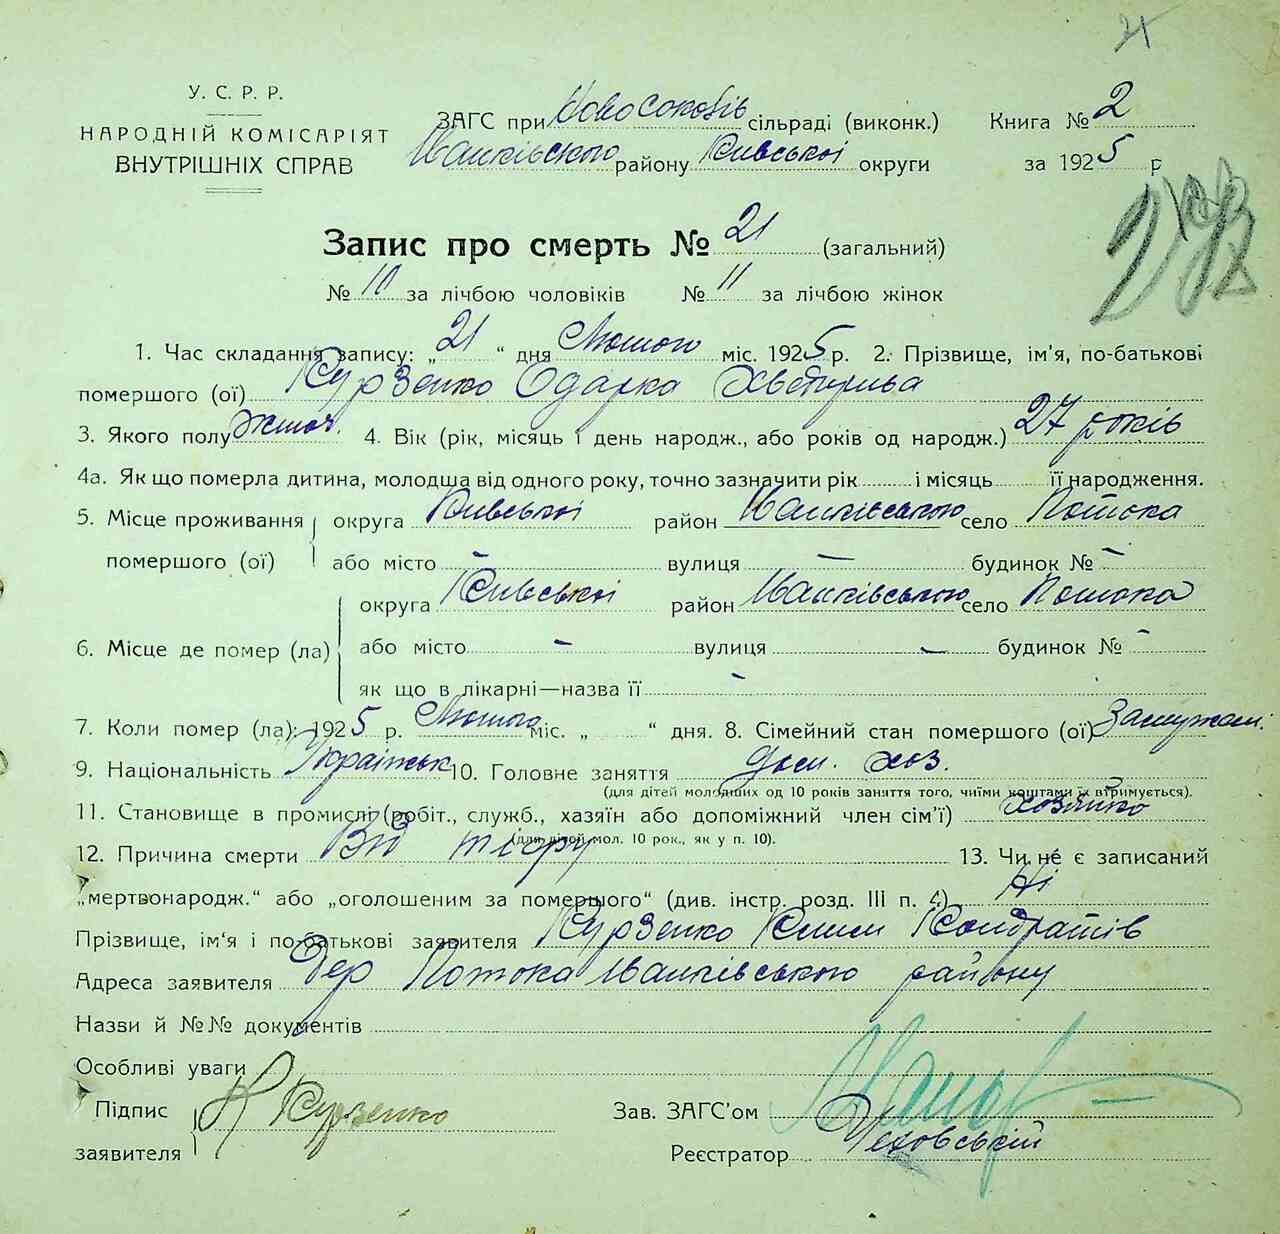 21
У. С. Р. Р.
НАРОДНІЙ КОМІСАРІЯТ
ВНУТРІШНІХ СПРАВ
ЗАГС при сільраді (виконк.)
Іванківського району Київської округи
Книга № 2
за 1925 р
Запис про смерть № 21 (загальний)
№ 10 за лічбою чоловіків № 11 за лічбою жінок
1. Час складання запису: „ 21 “ дня Лютого міс. 1925 р. 2. Прізвище, ім'я, по-батькові
помершого (ої) Курзенко Одарка
3. Якого полу жіноч. 4. Вік (рік, місяць і день народж., або років од народж.) 27 років
4а. Як що померла дитина, молодша від одного року, точно зазначити рік і місяць її народження.
5. Місце проживання округа Київської район Іванківського село Потока
помершого (ої) або місто – вулиця – будинок № –
округа Київської район Іванківського село Потока
6. Місце де помер (ла) або місто – вулиця – будинок № –
як що в лікарні—назва її –
7. Коли помер (ла): 1925 р. Лютого міс. „ “ дня. 8. Сімейний стан помершого (ої) Замужем.
9. Національність Українськ 10. Головне заняття дом. хоз.
(для дітей молодших од 10 років заняття того, чиїми коштами їх втримується).
11. Становище в промислі (робіт., служб., хазяїн або допоміжний член сім'ї)
(для дітей мол. 10 рок., як у п. 10).
12. Причина смерти Від тіфу 13. Чи не є записаний
„мертвонародж.“ або „оголошеним за помершого“ (див. інстр. розд. III п. 4) Ні
Прізвище, ім'я і по-батькові заявителя Курзенко Клим Кондратів
Адреса заявителя Дер Потока Іванківського району
Назви й №№ документів
Особливі уваги
Підпис
заявителя
К Курзенко
Зав. ЗАГС'ом
Реєстратор